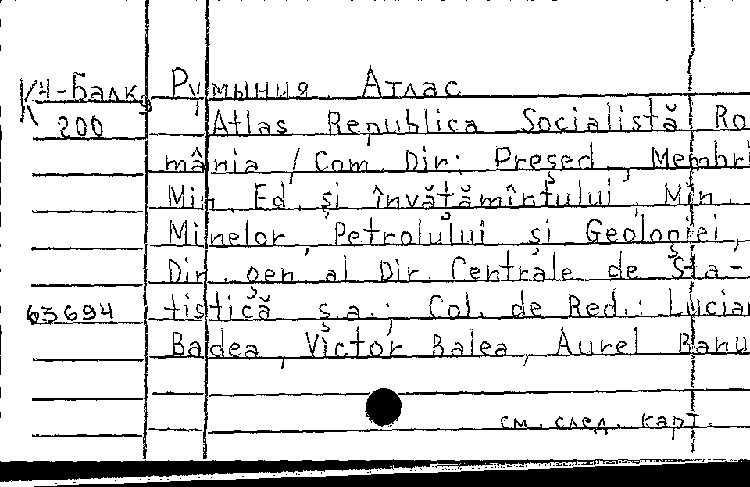 К4-Балк. Румыния. Атлас
200 Atlas Republica Socialistă Ro
mânia / Com. Dir.: Preşed., Membri
Min. Ed. şi învăţămîntului, Min.
Minelor, Petrolului şi Geologiei,
Dir. gen. al Dir. Centrale de Sta-
63694 tistică ş.a.; Col. de Red.: Lucian
Badea, Victor Balea, Aurel Banu
см. след. карт.